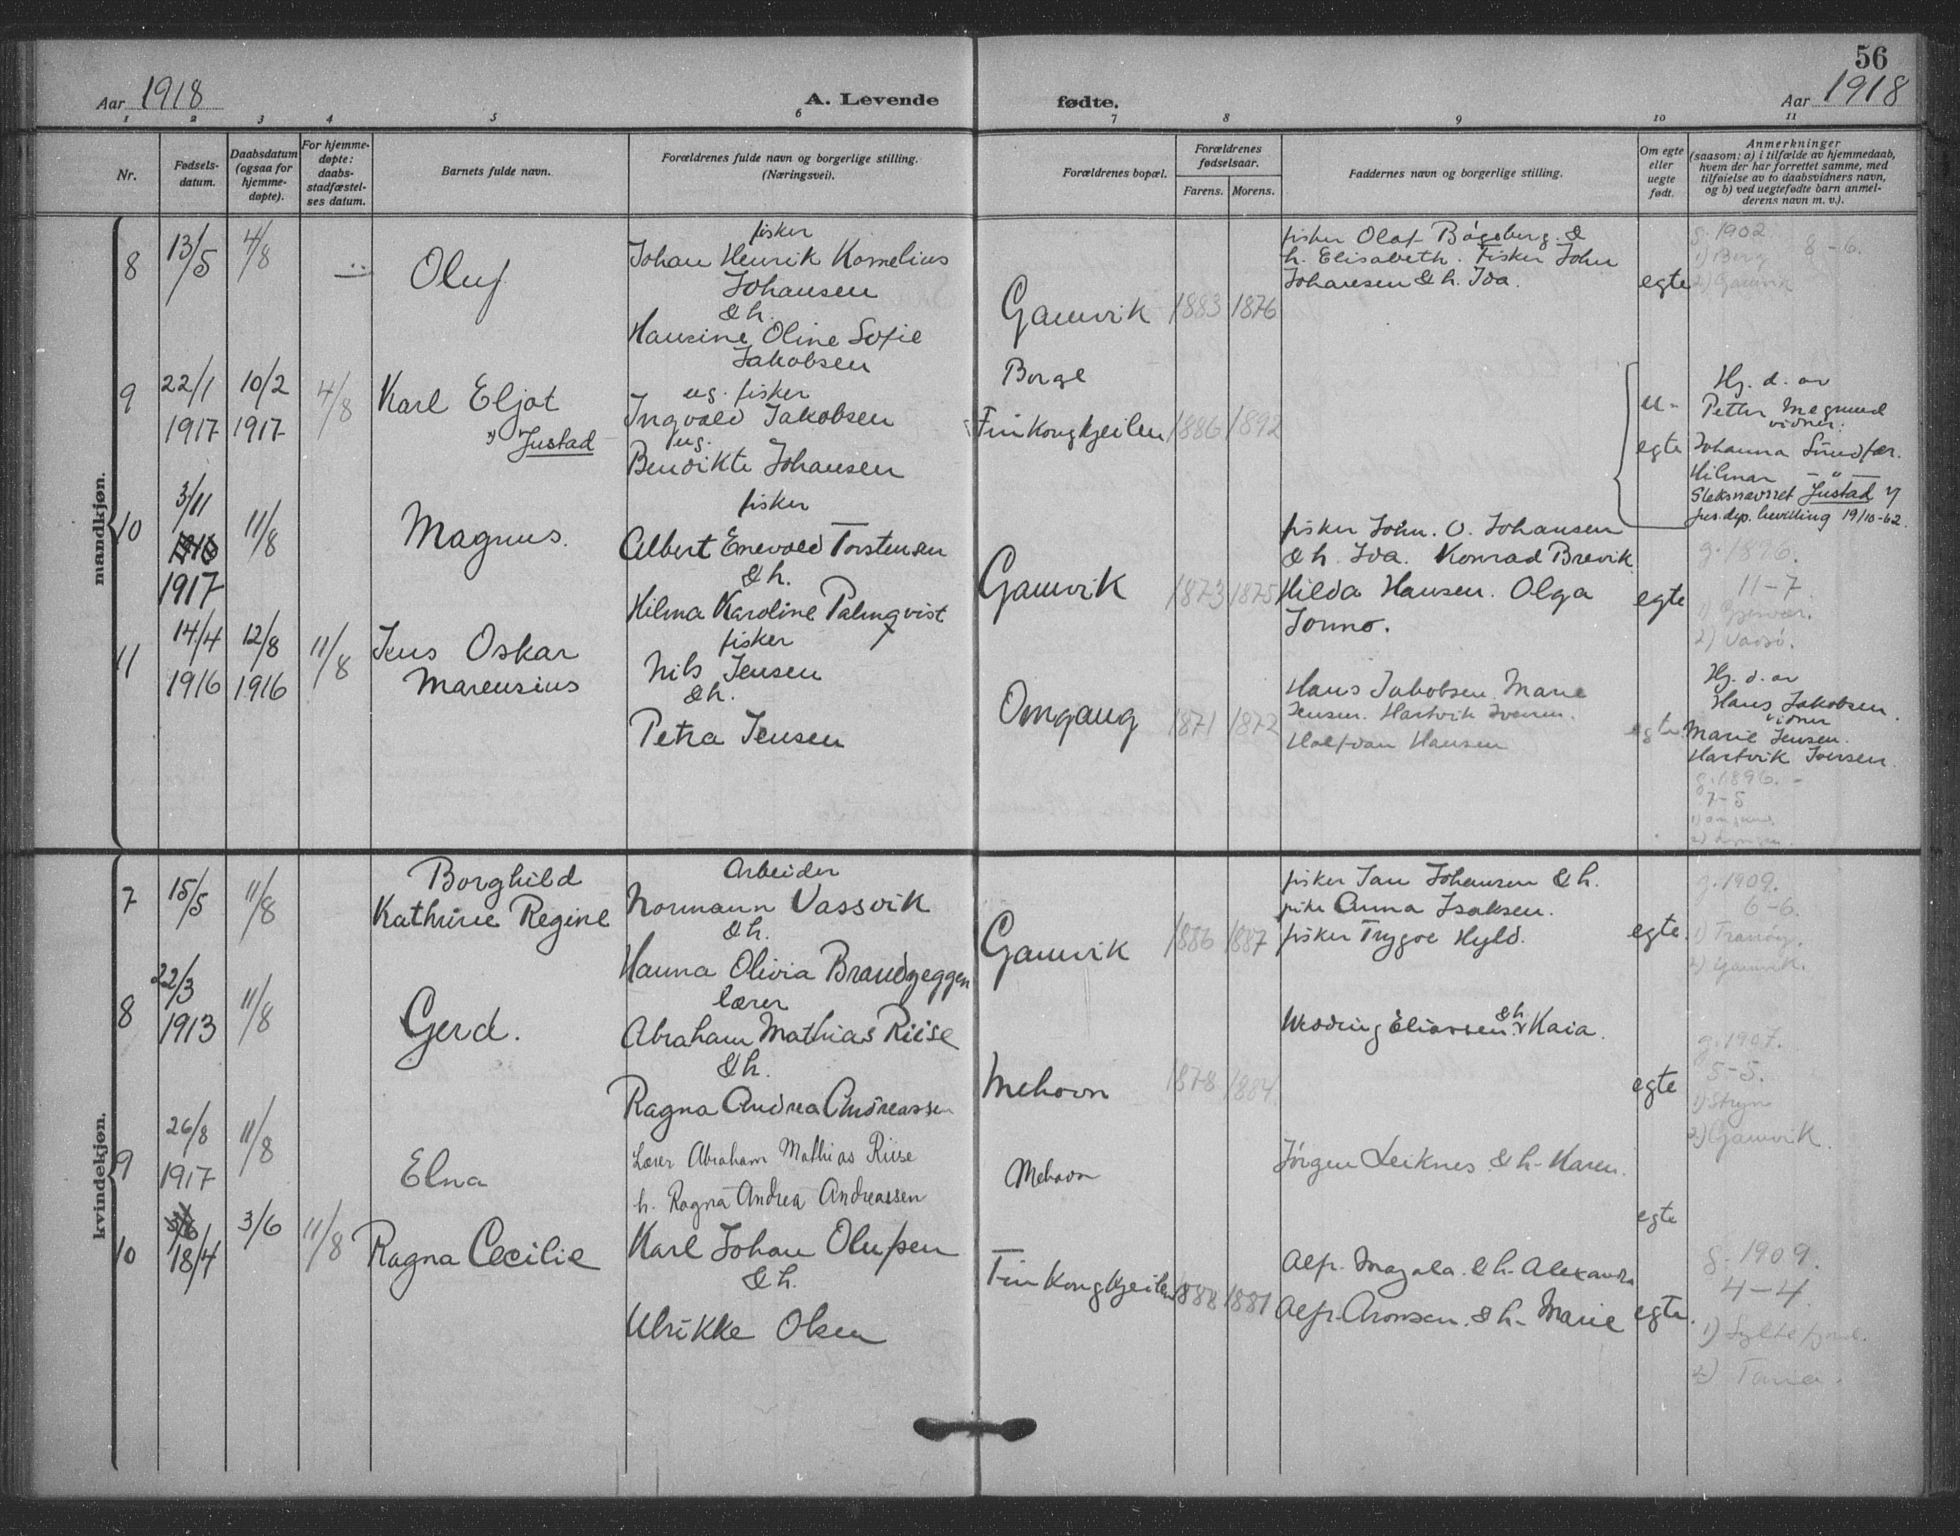 56
Aar 1918
A. Levende fødte.
Aar 1918
1 2 3 4 5 6 7 8 9 10 11
Nr.
Fødsels-
datum.
Daabsdatum
(ogsaa for
hjemme-
døpte).
For hjemme-
døpte:
daabs-
stadfæstel-
ses datum.
Barnets fulde navn.
Forældrenes fulde navn og borgerlige stilling.
(Næringsvei).
Forældrenes bopæl.
Forældrenes
fødselsaar.
Farens. Morens.
Faddernes navn og borgerlige stilling.
Om egte
eller
uegte
født.
Anmerkninger
(saasom: a) i tilfælde av hjemmedaab,
hvem der har forrettet samme, med
tilføielse av to daabsvidners navn,
og b) ved uegtefødte barn anmel-
derens navn m. v.).
mandkjøn.
8
13/5
4/8
Oluf
fisker
Johan Henrik Kornelius
Johansen
& h.
Hansine Oline Sofie
Jakobsen
Gamvik
1883 1876
fisker Olaf &
h. Elisabeth. Fisker John
Johansen & h. Ida.
egte
g. 1902
8-6.
1) Borge
2) Gamvik
9
22/1
1917
10/2
1917
4/8
Karl Eljot
" Justad
ug. fisker
Ingvald Jakobsen
ug.
Bendikte Johansen
Borge
Finkongkjeilen
1886 1892
u-
egte
Hj. d. av
Petter Magnud
vidner:
Johanna Sundfær.
Hilmar — " —
Slektsnavnet Justad if
jus.dep. bevilling 19/10-62.
10
3/11
1917
11/8
Magnus.
fisker
Albert Enevold Torstensen
& h.
Hilma Karoline Palmqvist
Gamvik
1873 1875
fisker John. O. Johansen
& h. Ida. Konrad Brevik
Hilda Hansen. Olga
Jonno.
egte
g. 1896.
11-7.
1) Gjesvær.
2) Vadsø.
11
14/4
1916
12/8
1916
11/8
Jens Oskar
Marensius
fisker
Nils Jensen
& h.
Petra Jensen
Omgang
1871 1872
Hans Jakobsen. Marie
Jensen. Hartvik Iversen.
Halfdan Hansen
egte
Hj. d. av
Hans Jakobsen.
vidner
Marie Jensen.
Hartvik Iversen.
g. 1896.
7-5
1) Omgang
kvindekjøn.
7
15/5
11/8
Borghild
Kathrine Regine
Arbeider
Normann Vassvik
& h.
Hanna Olivia Brandzeggen
Gamvik
1886 1887
fisker Jan Johansen & h.
pike Anna Isaksen.
fisker Trygve Hyld.
egte.
g. 1909.
6-6.
1) Tranøy.
2) Gamvik.
8
22/3
1913
11/8
Gerd.
lærer
Abraham Mathias Riise
& h.
Ragna Andrea Andreassen
Mehavn
1878 1884
Wedding Eliassen & h. Kaia.
egte
g. 1907.
5-5.
1) Stryn
2) Gamvik.
9
26/8
1917
11/8
Elna
Lærer Abraham Mathias Riise
h. Ragna Andrea Andreassen
Mehavn
Jörgen Leiknes & h. Karen.
egte
10
18/4
3/6
11/8
Ragna Cecilie
Karl Johan Olufsen
& h.
Ulrikke Olsen
Finkongkjeilen
1888 1881
Alfr. Mazala & h. Alexandra
Alfr. Aronsen. & h. Marie
egte.
g. 1909.
4-4
1) Syltefjord.
2) Tana.